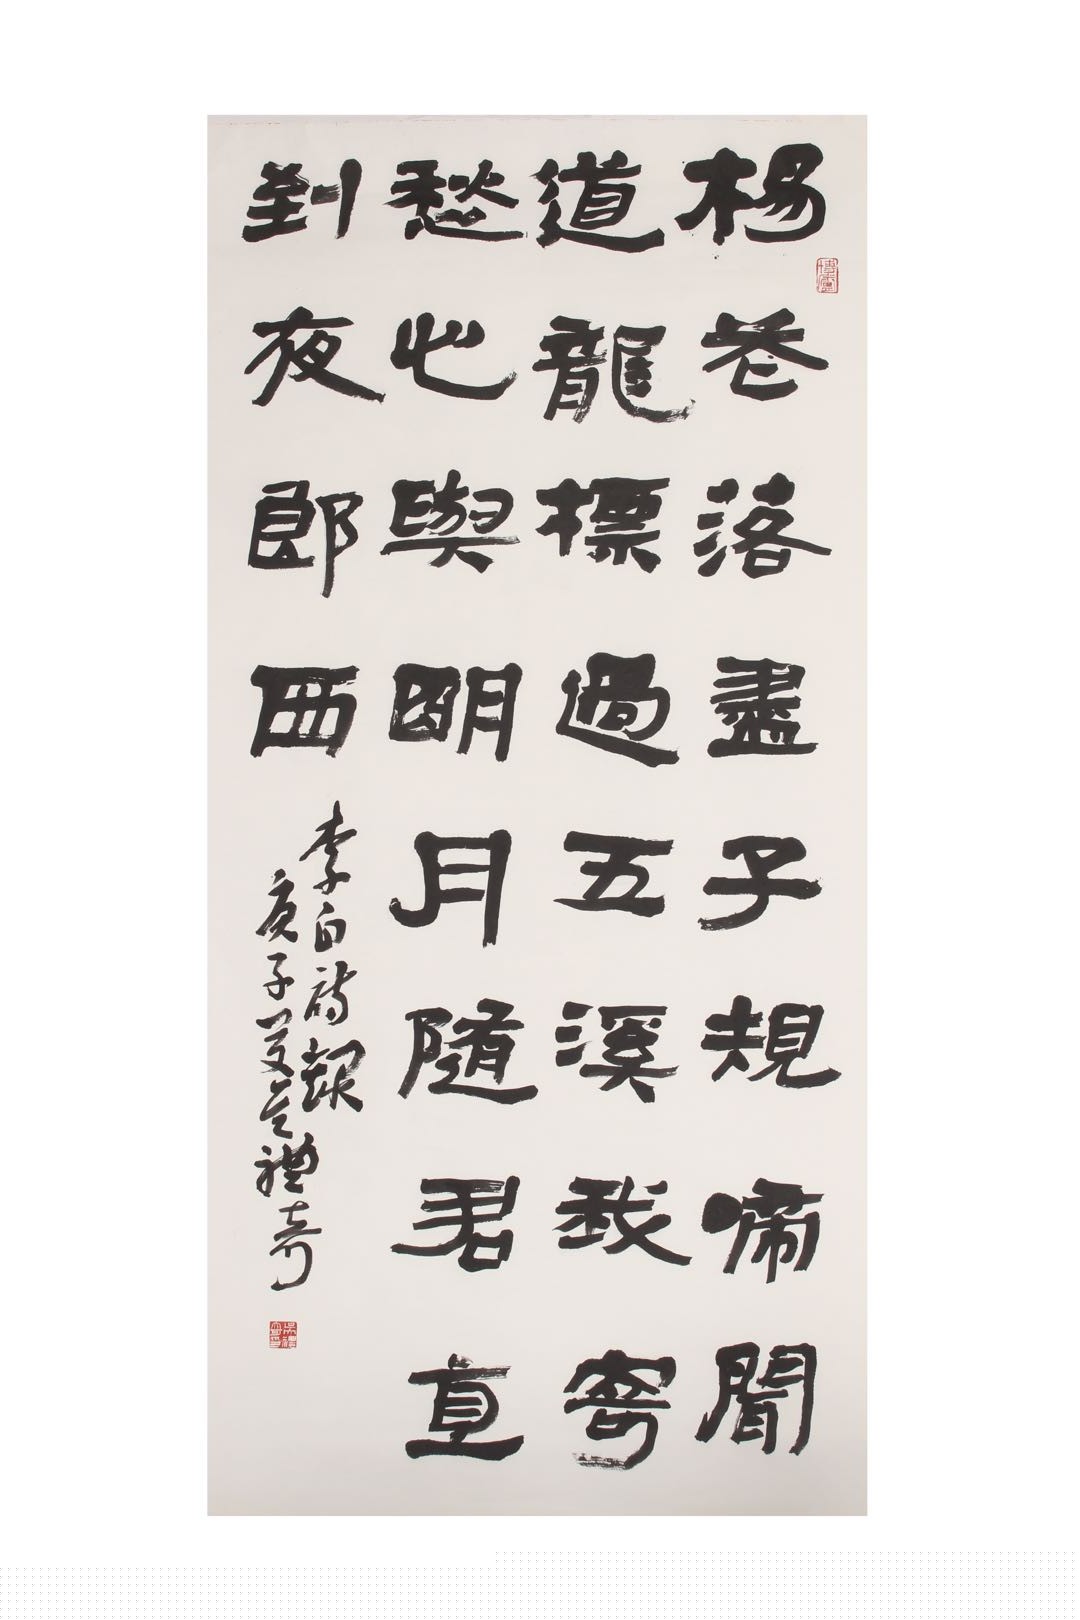 楊花落盡子規啼聞
道龍標過五溪我寄
愁心與明月隨君直
到夜郎西
李白詩
庚子夏 禮奇